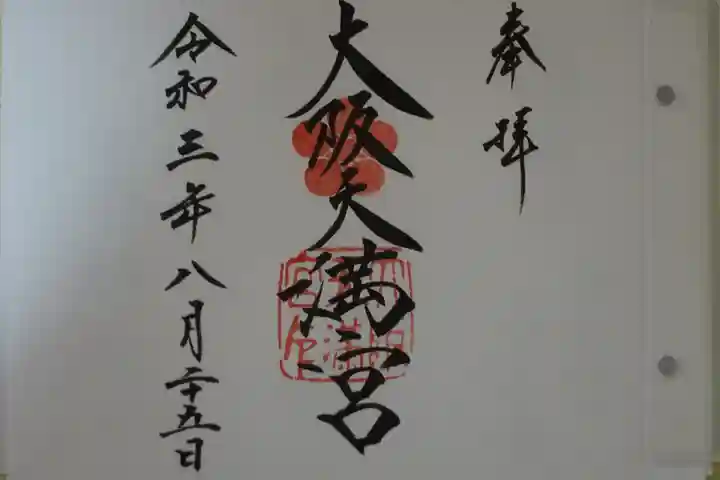 奉拝
大阪天満宮
令和三年八月二十五日